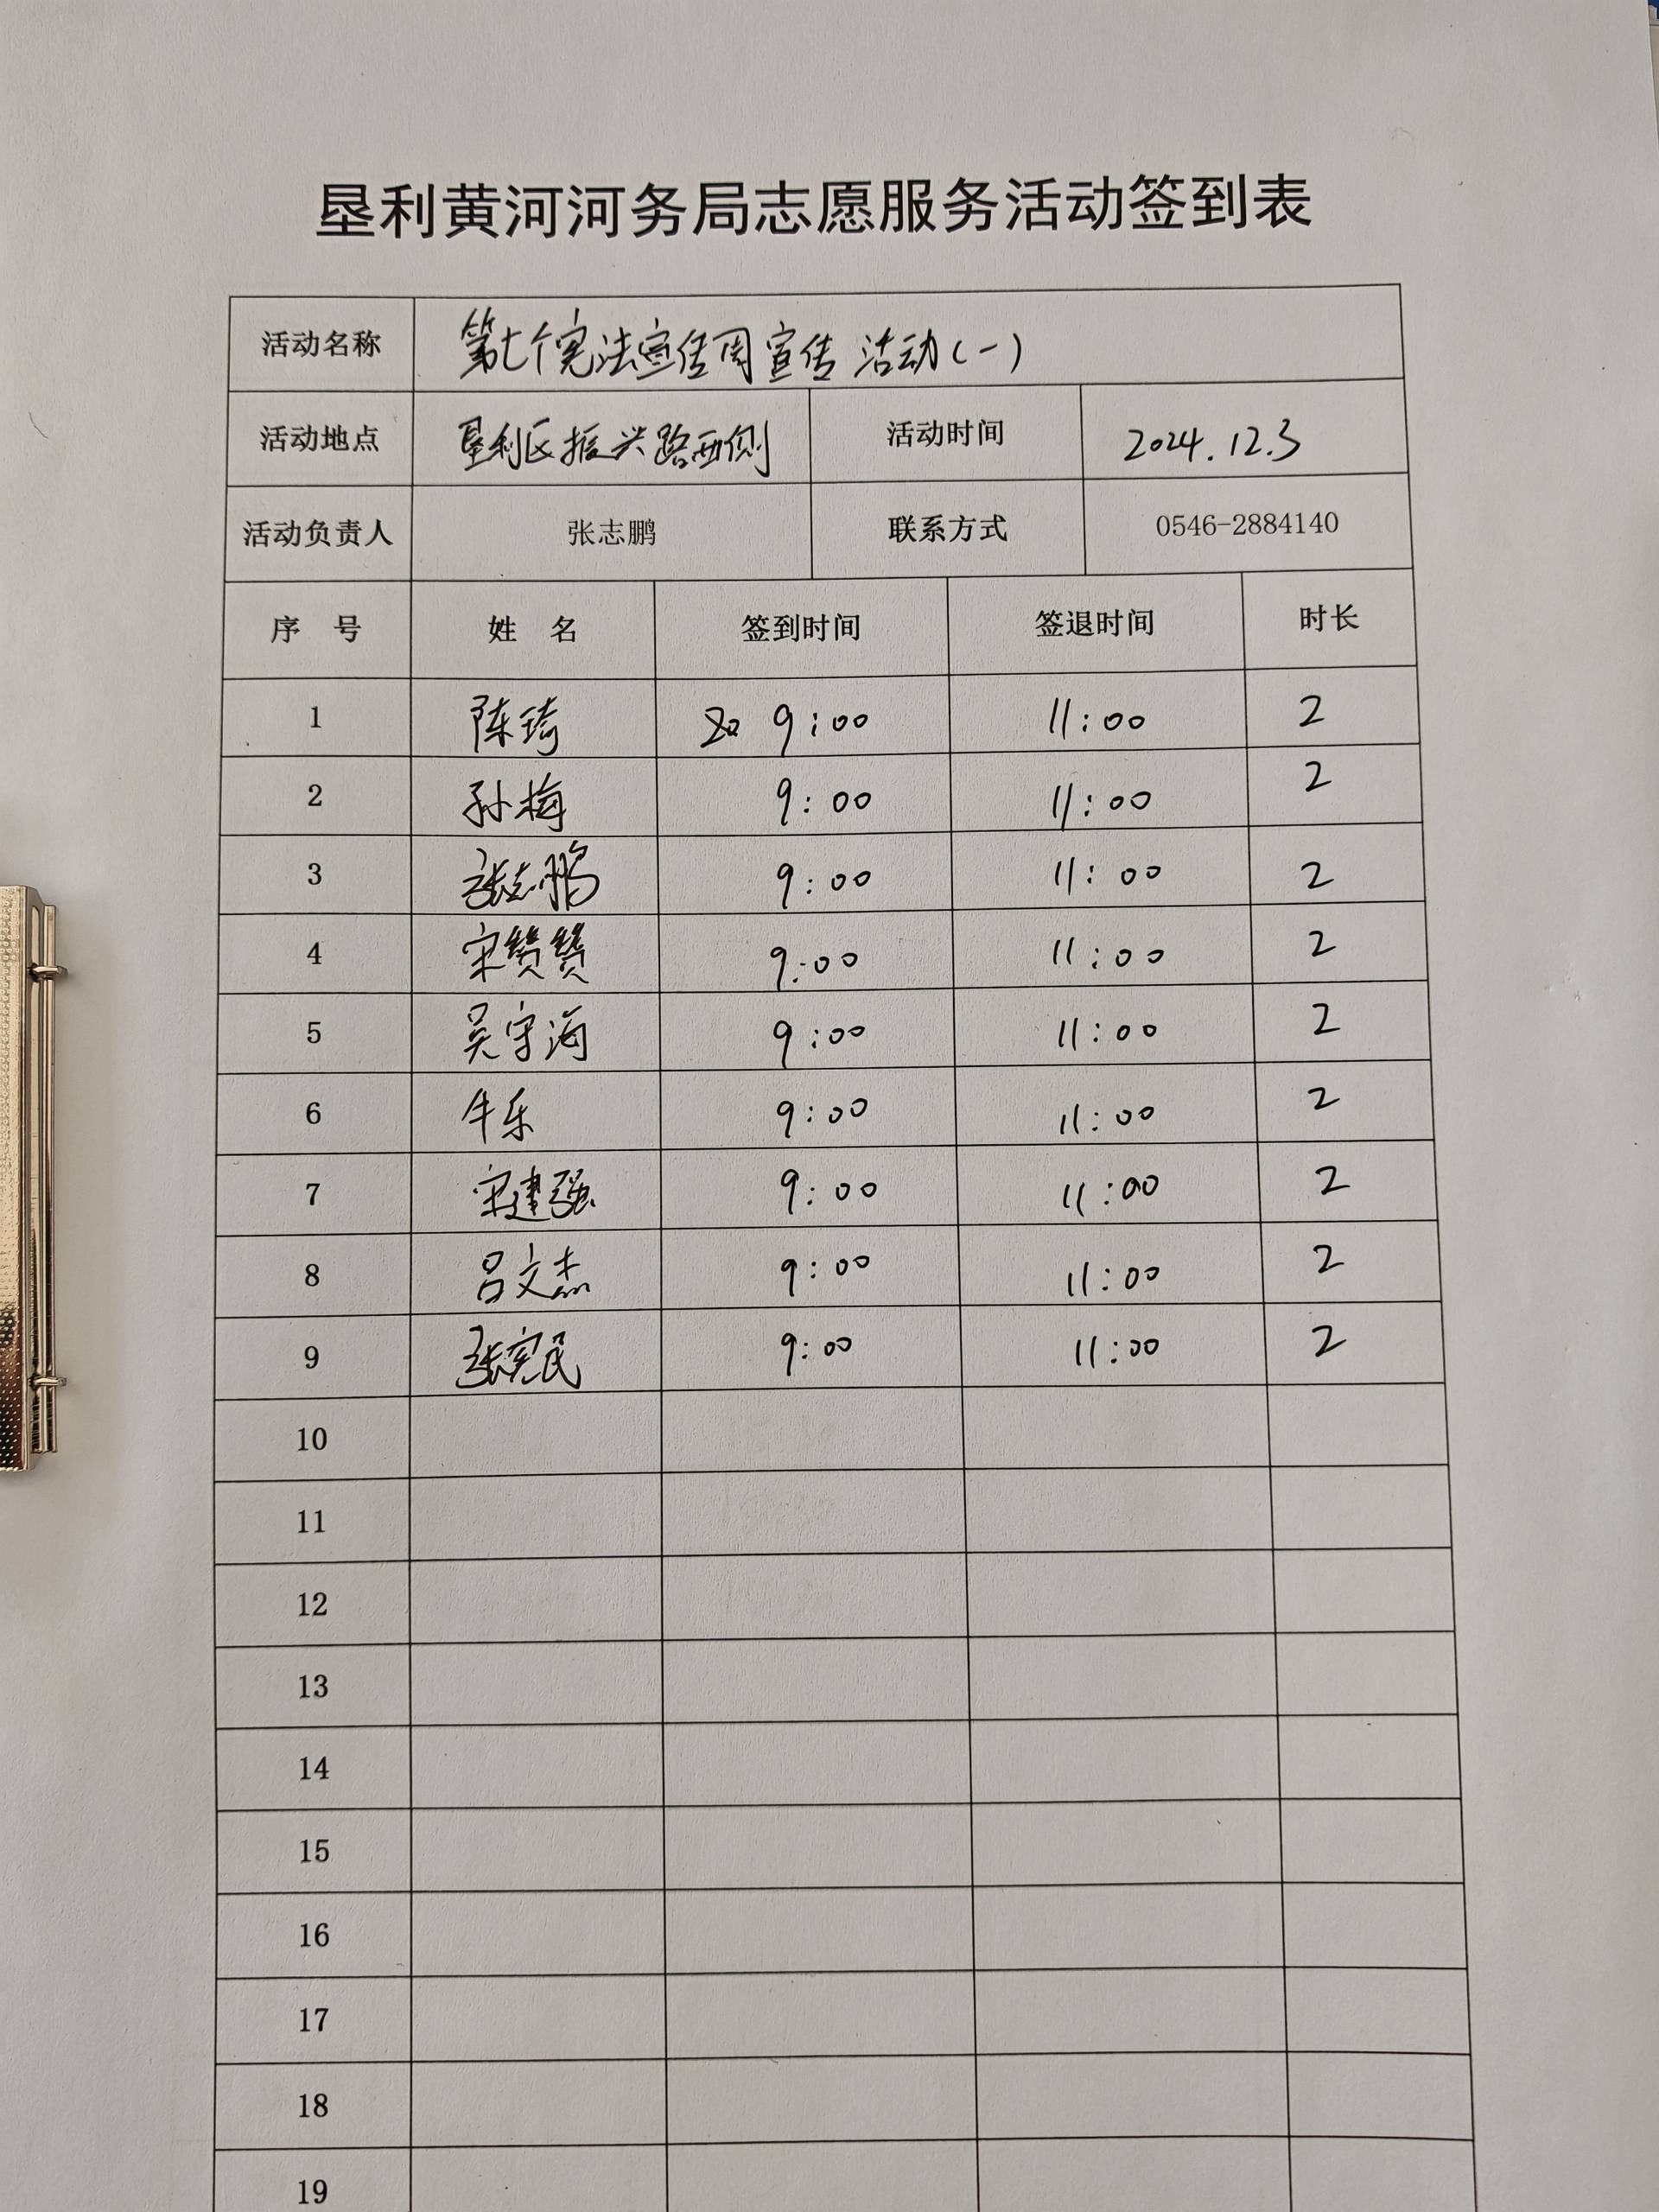 垦利黄河河务局志愿服务活动签到表
活动名称 第七个宪法宣传周宣传活动(一)
活动地点 垦利区振兴路西侧 活动时间 2024.12.3
活动负责人 张志鹏 联系方式 0546-2884140
序 号 姓 名 签到时间 签退时间 时长
1 陈琦 9:00 11:00 2
2 孙梅 9:00 11:00 2
3 张志鹏 9:00 11:00 2
4 宋赞赞 9:00 11:00 2
5 吴守海 9:00 11:00 2
6 牛乐 9:00 11:00 2
7 宋建强 9:00 11:00 2
8 吕文杰 9:00 11:00 2
9 张宪民 9:00 11:00 2
10
11
12
13
14
15
16
17
18
19